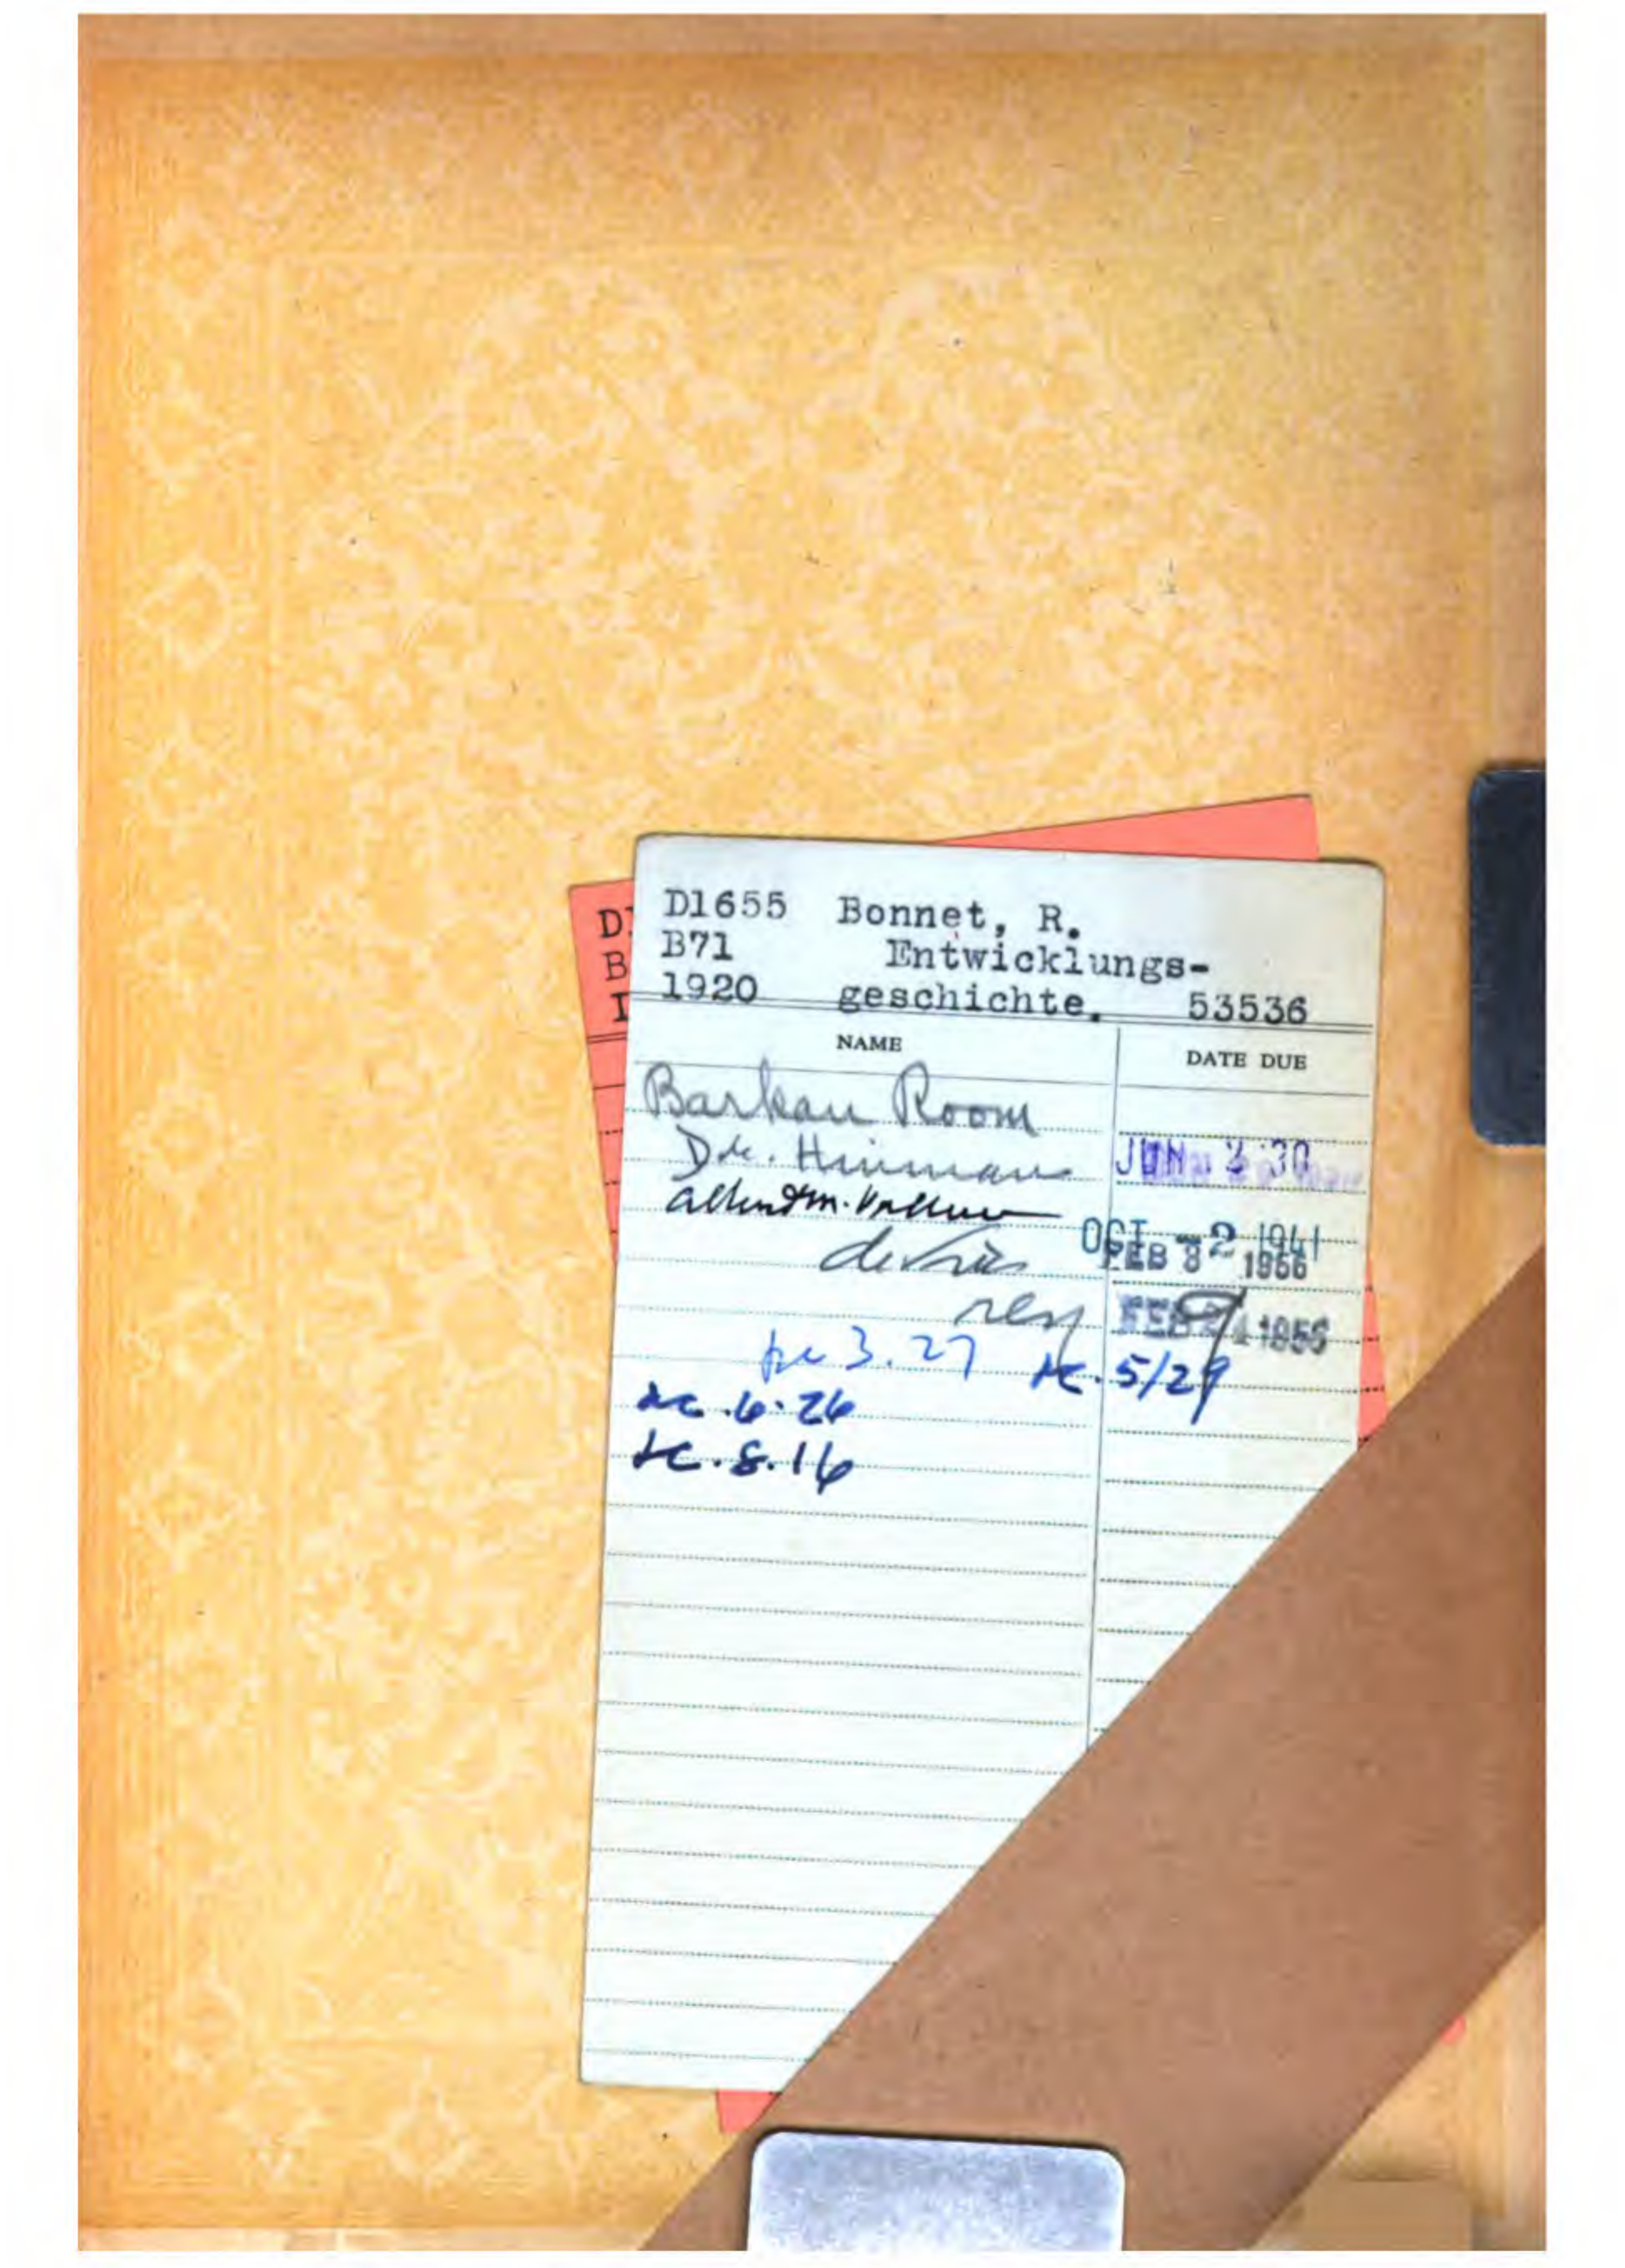 D1655 Bonnet, R.
B71 Entwicklungs-
1920 geschichte. 53536
D
B
NAME DATE DUE
Barkan Room
Dr. Hinman JUN 3 '30
OCT -2 1941
de Vries FEB 8 1956
FEB 1956
3.27 5/29
.6.26
.8.16